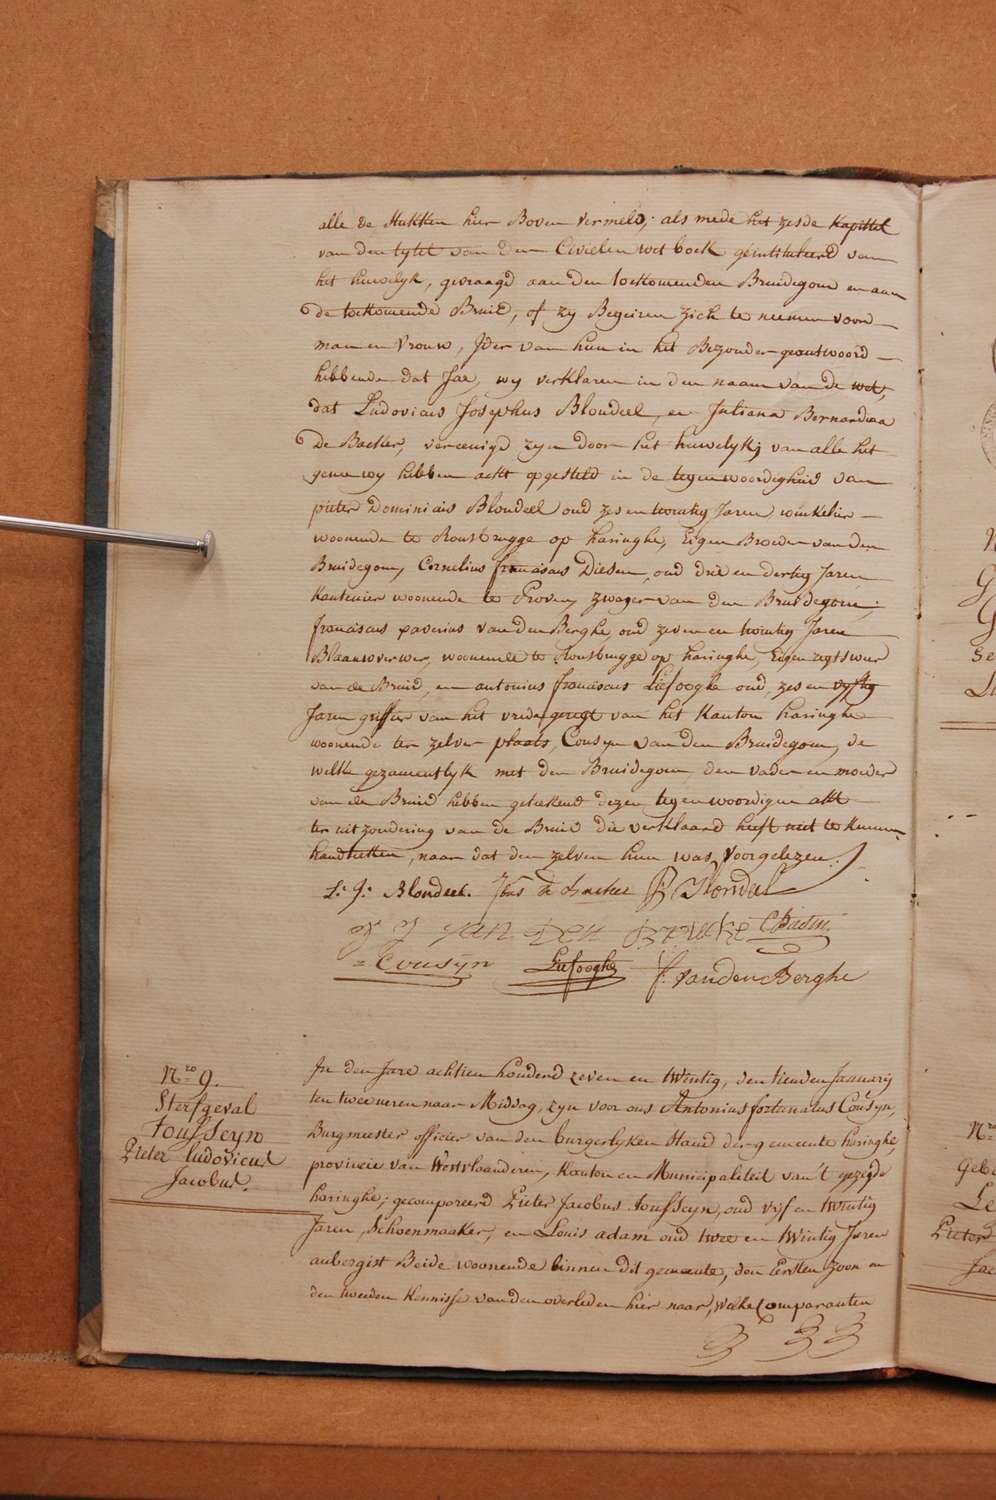 alle de Stukken hier Boven vermeld; als mede het zesde kapittel
van den tytel van den Civielen wet boek geintituleerd van
het huwelyk, gevraagd aan den toekomenden Bruidegom en aan
de toekomende Bruid, of zy Begeiren zich te neemen voor
man en Vrouw, Jder van hun in het Bezonder geantwoord
hebbende dat Jae, wy verklaren in den naam van de wet,
dat Ludovicus Josephus Blondeel, en Juliana Bernardina
De Backer, vereenigd zyn door het huwelyk; van alle het
gene wy hebben ackt opgesteld in de tegenwoordigheid van
pieter Dominicus Blondeel oud zes en twintig Jaren winkelier
woonende te Rousbrugge op haringhe, Eigen Broeder van den
Bruidegom, Cornelius franciscus Diesen, oud drie en dertig Jaren
woonende te Proven, zwager van den Bruidegom;
franciscus xaverius van den Berghe, oud zeven en twintig Jaren
Blaauwverwer, woonende te Rousbrugge op haringhe, Eigen
van de Bruid, en antonius franciscus Liefooghe oud, zes en vyftig
Jaren griffier van het vredegeregt van het Kanton haringhe
woonende ter zelver plaats, Cousyn van den Bruidegom, de
welke gezamentlyk met den Bruidegom, den vader en moeder
van de Bruid hebben geteekend dezen tegenwoordigen akt
ter uitzondering van de Bruid die verklaard heeft niet te kunnen
handteeken, naar dat den zelven hun was voorgelezen.
L: J: Blondeel. de backer P Blondeel
J J van Den Brouke C Diesen
= Cousyn Liefooghe f. vandenBerghe
Nro 9.
Sterfgeval
Jousseyn
Pieter Ludovicus
Jacobus.
In den Jare achtien honderd zeven en twintig, den tienden January
ten twee uren naar Middag, zyn voor ons Antonius fortunatus Cousyn,
Burgmeester officier van den burgerlyken stand der gemeente haringhe,
provincie van Westvlaanderen, Kanton en Municipaliteit van 't gezegde
haringhe; gecompareerd Pieter Jacobus Jousseyn, oud vyf en twintig
Jaren, Schoenmaaker, en Louis adam oud twee en twintig Jaren
aubergist Beide woonende binnen dit gemeente, den Eersten zoon en
den tweeden Kennisse van den overleden hier naar, welke Comparanten